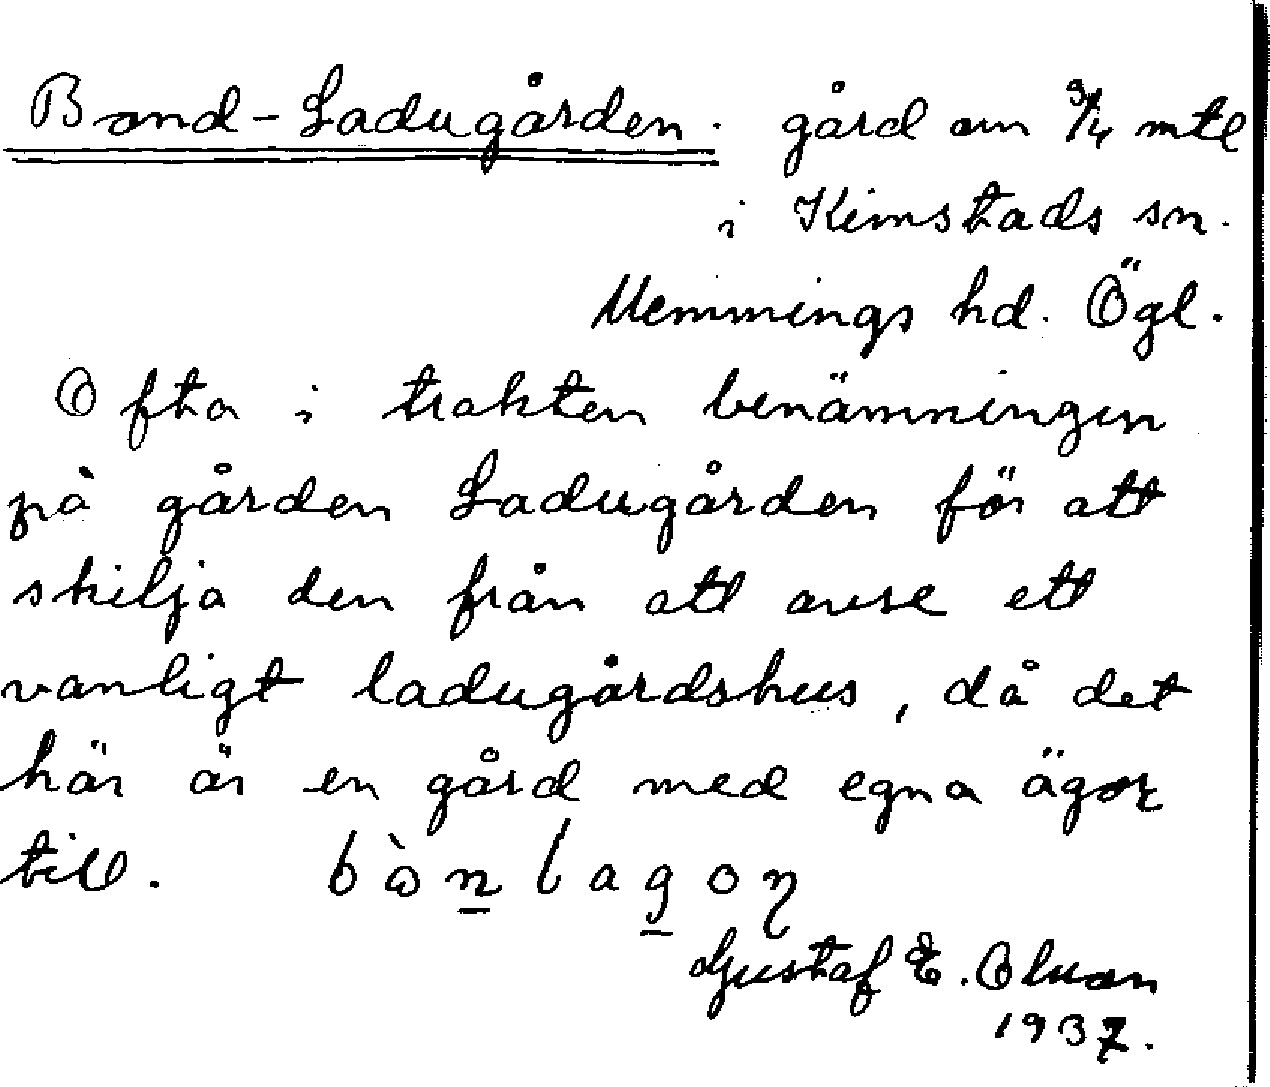 Bond-Ladugården. gård om 3/4 mtl
i Kimstads sn.
Memmings hd. Ögl.
Ofta i trakten benämningen
på gården Ladugården för att
skilja den från att avse ett
vanligt ladugårdshus, då det
här är en gård med egna ägor
till. bònlagoŋ
Gustaf E. Olsson
1937.